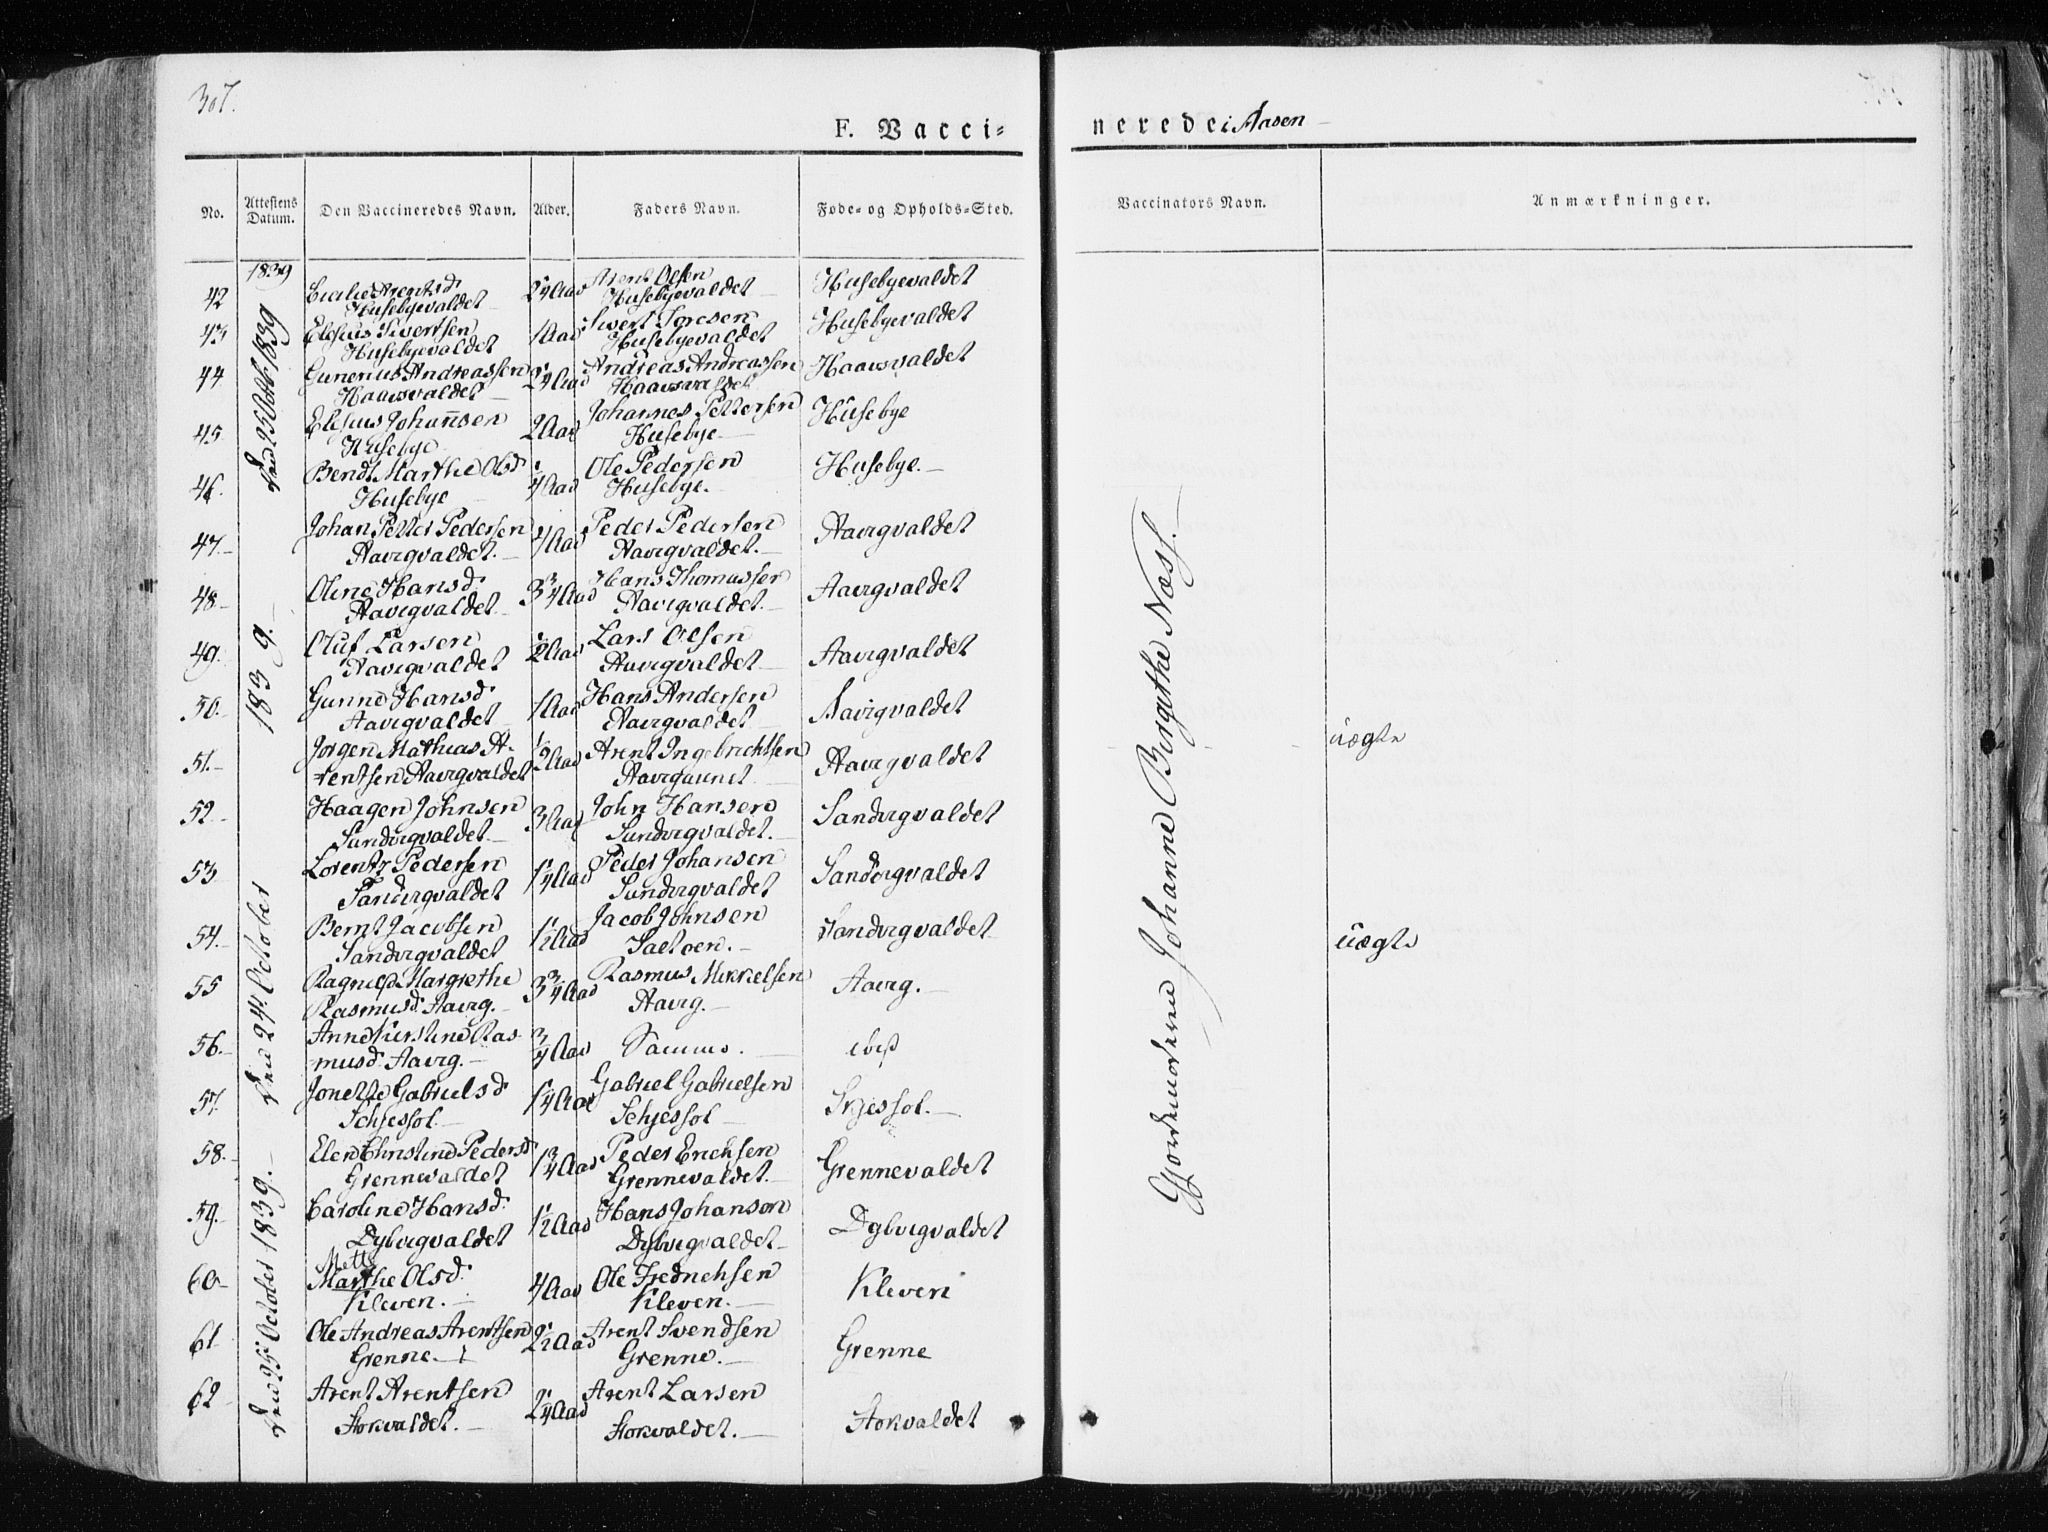 307.
F. Vacci-
nerede i Aasen
No.
Attestens Datum.
Den Vaccineredes Navn.
Alder.
Faders Navn.
Føde- og Opholds-Sted.
Vaccinators Navn.
Anmærkninger.
1839
42 Arentsd. 2 1/4 Aar Arent Olsen Husebyevaldet
Husebyevaldet Husebyevaldet
43 Elesius Sivertsen 1 Aar Sivert Toresen Husebyevaldet
Husebyevaldet Husebyevaldet
44 Gunerius Andreassen 2 1/4 Aar Andreas Andreassen Haavsvaldet
Haavsvaldet Haavsvaldet
45 Elesius Johannsen 2 Aar Johannes Pettersen Husebye
Husebye Husebye
46. Martha Olsd. 1/4 Aar Ole Pedersen Husebye.
Husebye Husebye.
47. Johan Petter Pedersen Aar Peder Pedersen Aavigvaldet
Aavigvaldet. Aavigvaldet.
48. Oline Hansd. 3 3/4 Aar Hans Thomassen Aavigvaldet
Aavigvaldet Aavigvaldet.
49. Oluf Larsen 1/2 Aar Lars Olsen Aavigvaldet
Aavigvaldet Aavigvaldet
50. Hansd. 1 Aar Hans Andersen Aavigvaldet
Aavigvaldet Aavigvaldet
51. Jørgen Mathias A- 1/2 Aar Arent Ingebrichtsen Aavigvaldet uægte
rentsen Aavigvaldet Aavigaunet
52. Haagen Johnsen 3 Aar John Hansen Sandvigvaldet
Sandvigvaldet Sandvigvaldet.
53 Lorentz Pedersen 1 1/4 Aar Peder Johansen Sandvigvaldet
Sandvigvaldet Sandvigvaldet
54. Bernt Jacobsen 1 1/2 Aar Jacob Johnsen Sandvigvaldet uægte
Sandvigvaldet
55 Margrethe 3 3/4 Aar Rasmus Mikkelsen Aavig.
Rasmusd. Aavig. Aavig.
56. Anne Kirstine Ras- 3/4 Aar Samme. ibid
musd. Aavig.
57. Jonette Gabrielsd. 1 1/4 Aar Gabriel Gabrielsen Skjessol.
Schjessol Schjessol
58. Elen Christine Pedersd. 1 3/4 Aar Peder Erichsen Grennevaldet
Grennevaldet Grennevaldet.
59. Caroline Hansd. 1 1/2 Aar Hans Johanson Dybvigvaldet
Dybvigvaldet Dybvigvaldet
Mette
60 Marthe Olsd. 4 Aar Ole Fredrichsen Kleven
Kleven. Kleven.
61 Ole Andreas Arentsen 2 1/2 Aar Arent Svendsen Grenne
Grenne. Grenne.
62 Arent Arentsen 2 1/4 Aar Arent Larsen Storvaldet
Storvaldet. Storvaldet.
Den 25 Octb. 1839
Den 24. October 1839.
Den 25 October 1839.
Gjordemoderne Johanne Birgithe Næss.